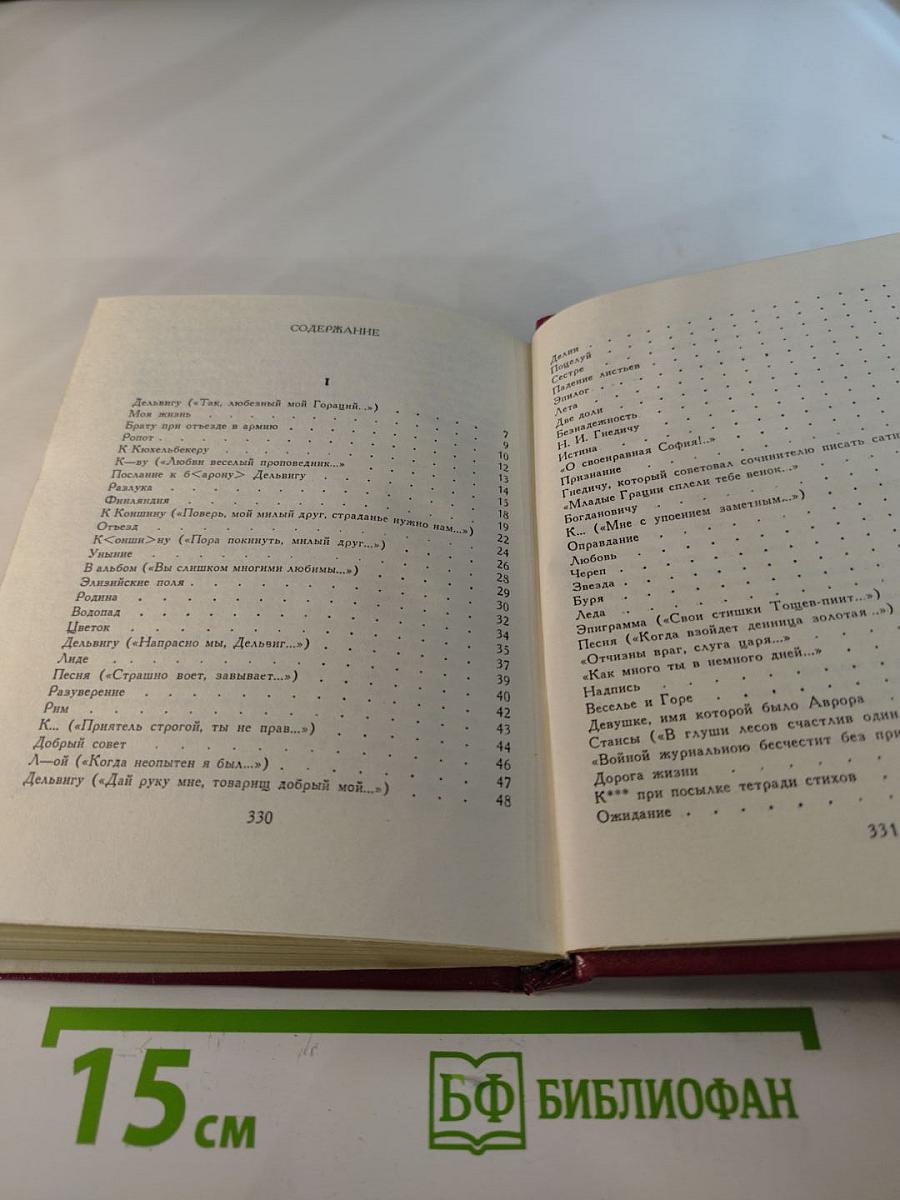 СОДЕРЖАНИЕ
I
Дельвигу («Так, любезный мой Гораций..») 7
Моя жизнь . . . . . . . . 9
Брату при отъезде в армию . . . . . . 10
Ропот . . . . . . . . 12
К Кюхельбекеру . . . . . . . . 13
К—ву («Любви веселый проповедник...» . . . . 14
Послание к б<арону> Дельвигу . . . . . 15
Разлука . . . . . . . . 18
Финляндия . . . . . . . . 19
К Коншину («Поверь, мой милый друг, страданье нужно нам...») 22
Отъезд . . . . . . . . 24
К<онши>ну («Пора покинуть, милый друг...») . . . 26
Уныние . . . . . . . . 28
В альбом («Вы слишком многими любимы...») . . . 29
Элизийские поля . . . . . . . . 30
Родина . . . . . . . . 32
Водопад . . . . . . . . 34
Цветок . . . . . . . . 35
Дельвигу («Напрасно мы, Дельвиг...») . . . . 37
Лиде . . . . . . . . 39
Песня («Страшно воет, завывает...») . . . . 40
Разуверение . . . . . . . . 42
Рим . . . . . . . . 43
К... («Приятель строгой, ты не прав...») . . . . 44
Добрый совет . . . . . . . . 46
Л—ой («Когда неопытен я был...») . . . . . 47
Дельвигу («Дай руку мне, товарищ добрый мой...») . . . 48
330
Делии . . . . . . . .
Поцелуй . . . . . . . .
Сестре . . . . . . . .
Падение листьев . . . . . . .
Эпилог . . . . . . . .
Лета . . . . . . . .
Две доли . . . . . . . .
Безнадежность . . . . . . .
Н. И. Гнедичу . . . . . . .
Истина . . . . . . . .
«О своенравная София!..» . . . . .
Признание . . . . . . . .
Гнедичу, который советовал сочинителю писать сати
«Младые Грации сплели тебе венок...» . . .
Богдановичу . . . . . . .
К... («Мне с упоением заметным...») . . .
Оправдание . . . . . . .
Любовь . . . . . . . .
Череп . . . . . . . .
Звезда . . . . . . . .
Буря . . . . . . . .
Леда . . . . . . . .
Эпиграмма («Свои стишки Тощев-пиит...»)
Песня («Когда взойдет денница золотая ..») .
«Отчизны враг, слуга царя...» . . . .
«Как много ты в немного дней...» . . .
Надпись . . . . . . .
Веселье и Горе . . . . . . .
Девушке, имя которой было Аврора . . .
Стансы («В глуши лесов счастлив один
«Войной журнальною бесчестит без при
Дорога жизни . . . . . .
К*** при посылке тетради стихов . . .
Ожидание . . . . . . .
331
15 см
БФ БИБЛИОФАН